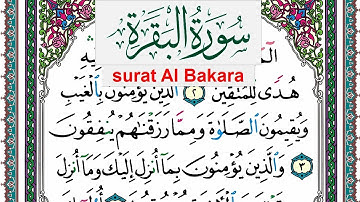 سُورَةُ الْبَقَرَةِ
surat Al Bakara
الٓمٓ
فِيهِ
هُدًى لِّلْمُتَّقِينَ ٢ الَّذِينَ يُؤْمِنُونَ بِالْغَيْبِ
وَيُقِيمُونَ الصَّلَوٰةَ وَمِمَّا رَزَقْنَٰهُمْ يُنفِقُونَ
٣ وَالَّذِينَ يُؤْمِنُونَ بِمَا أُنزِلَ إِلَيْكَ وَمَا أُنزِلَ